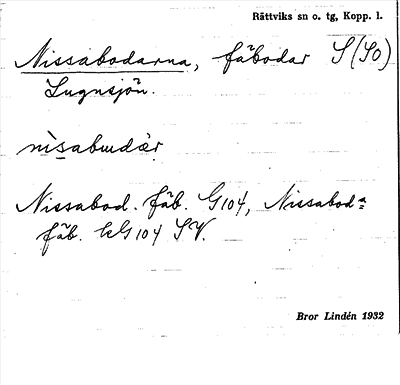 Rättviks sn o. tg, Kopp. l.
Nissabodarna, fäbodar S (SO)
Lugnsjön.
nìsabudàr
Nissabod. fäb. G104, Nissabodª=
fäb. kG104 SV.
Bror Lindén 1932